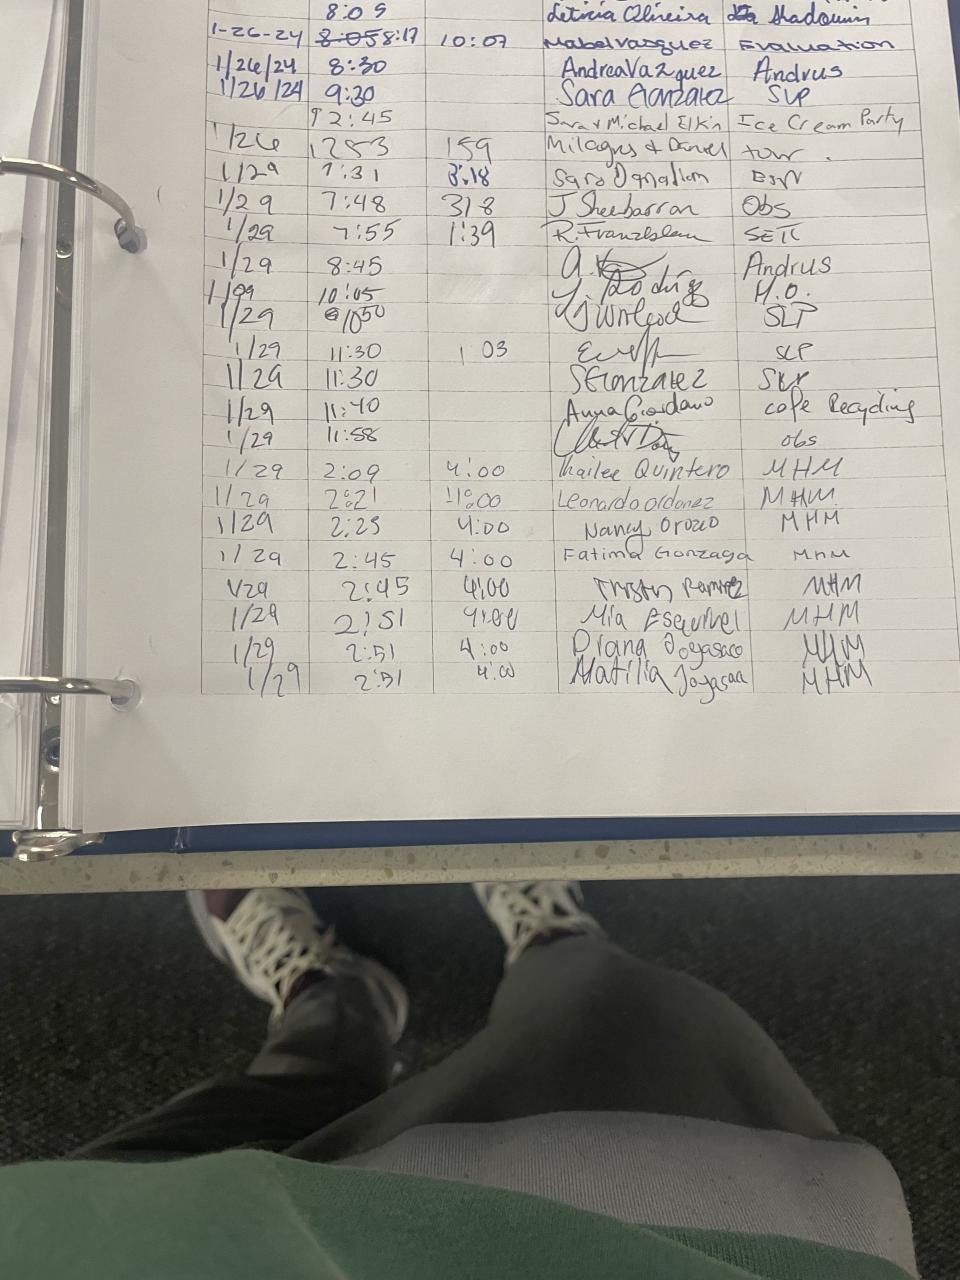 8:09 Leticia Oliveira Shadowin
1-26-24 8:05 8:17 10:07 Mabel Vasquez Evaluation
1/26/24 8:30 Andrea Vazquez Andrus
1/26/24 9:30 Sara Gonzalez SLP
12:45 Sara + Michael Elkin Ice Cream Party
1/26 1253 159 Milagros & Daniel tour.
1/29 7:31 3:18 Sara
1/29 7:48 318 J Obs
1/29 7:55 1:39 R.
1/29 8:45 Andrus
1/29 10:05 Y. Rodrig H.O.
1/29 1050 SLP
1/29 11:30 1 03 SLP
1/29 11:30 SGonzalez
1/29 11:40 Anna Giordano cafe Recycling
1/29 11:58 obs
1/29 2:09 4:00 Kailee Quintero MHM
1/29 2:21 4:00 Leonardo Ordonez MHM
1/29 2:25 4:00 Nancy Orozco MHM
1/29 2:45 4:00 Fatima Gonzaga MHM
1/29 2:45 4:00 Tristan Ramirez MHM
1/29 2:51 4:00 Mia Esquivel MHM
1/29 2:51 4:00 Diana Joyasaca MHM
1/29 2:51 4:00 Matilia Joyasaca MHM